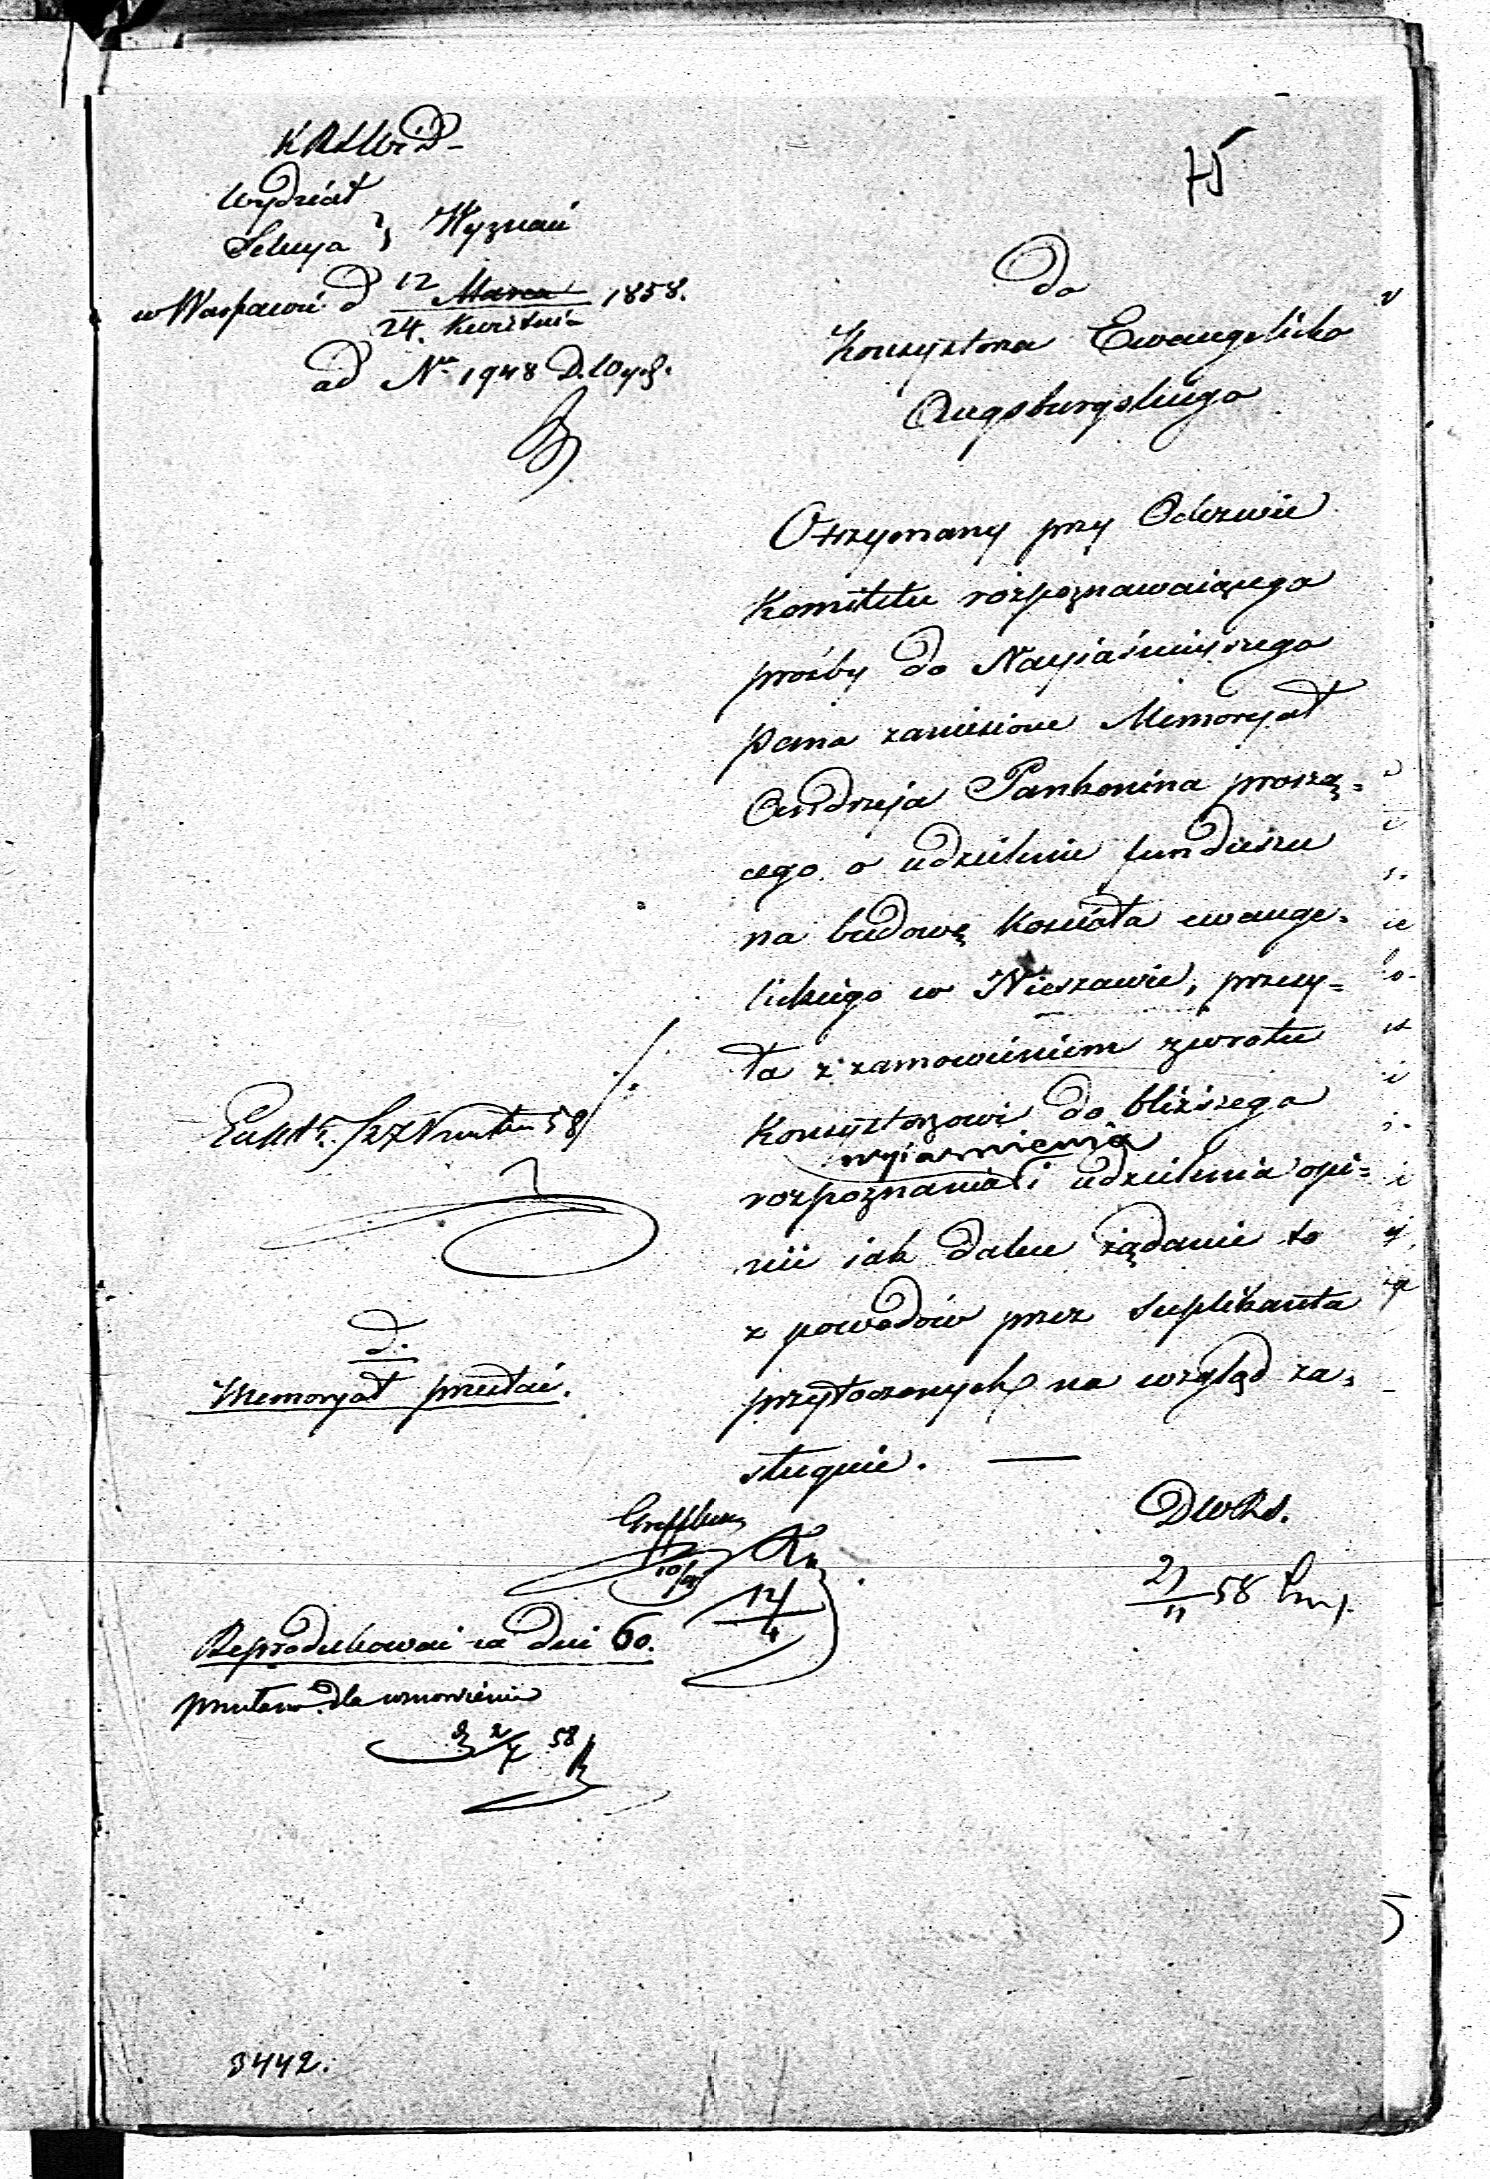 KRSWiD
Wydział
Sekcya } Wyznań
w Warszawie d 12 Marca 1858.
24. Kwietnia
ad No 1948 D. Wyz.
Do
Konsystorza Ewangelicko
Augsburgskiego
Otrzymany przy Odezwie
Komitetu rozpoznawaiącego
prośby do Nayiaśnieyszego
Pana zaniesione Memoryał
Andrzeja Pankonina proszą=
cego o udzielenie funduszu
na budowę Kościoła ewange=
lickiego w Nieszawie, przesy=
ła z zamowieniem zwrotu
Konsystorzowi do bliższego
wyiasnienia
rozpoznania i udzielenia opi=
nii iak dalece żądanie to
z powodów przez Suplikanta
przytoczonych na wzgląd za=
sługuie. —
27 Kwietnia 58
d.
Memoryał przesłać.
DWRS.
10/4
12/4
58
Reprodukować za dni 60.
dla wznowienia
2/7 58
3442.